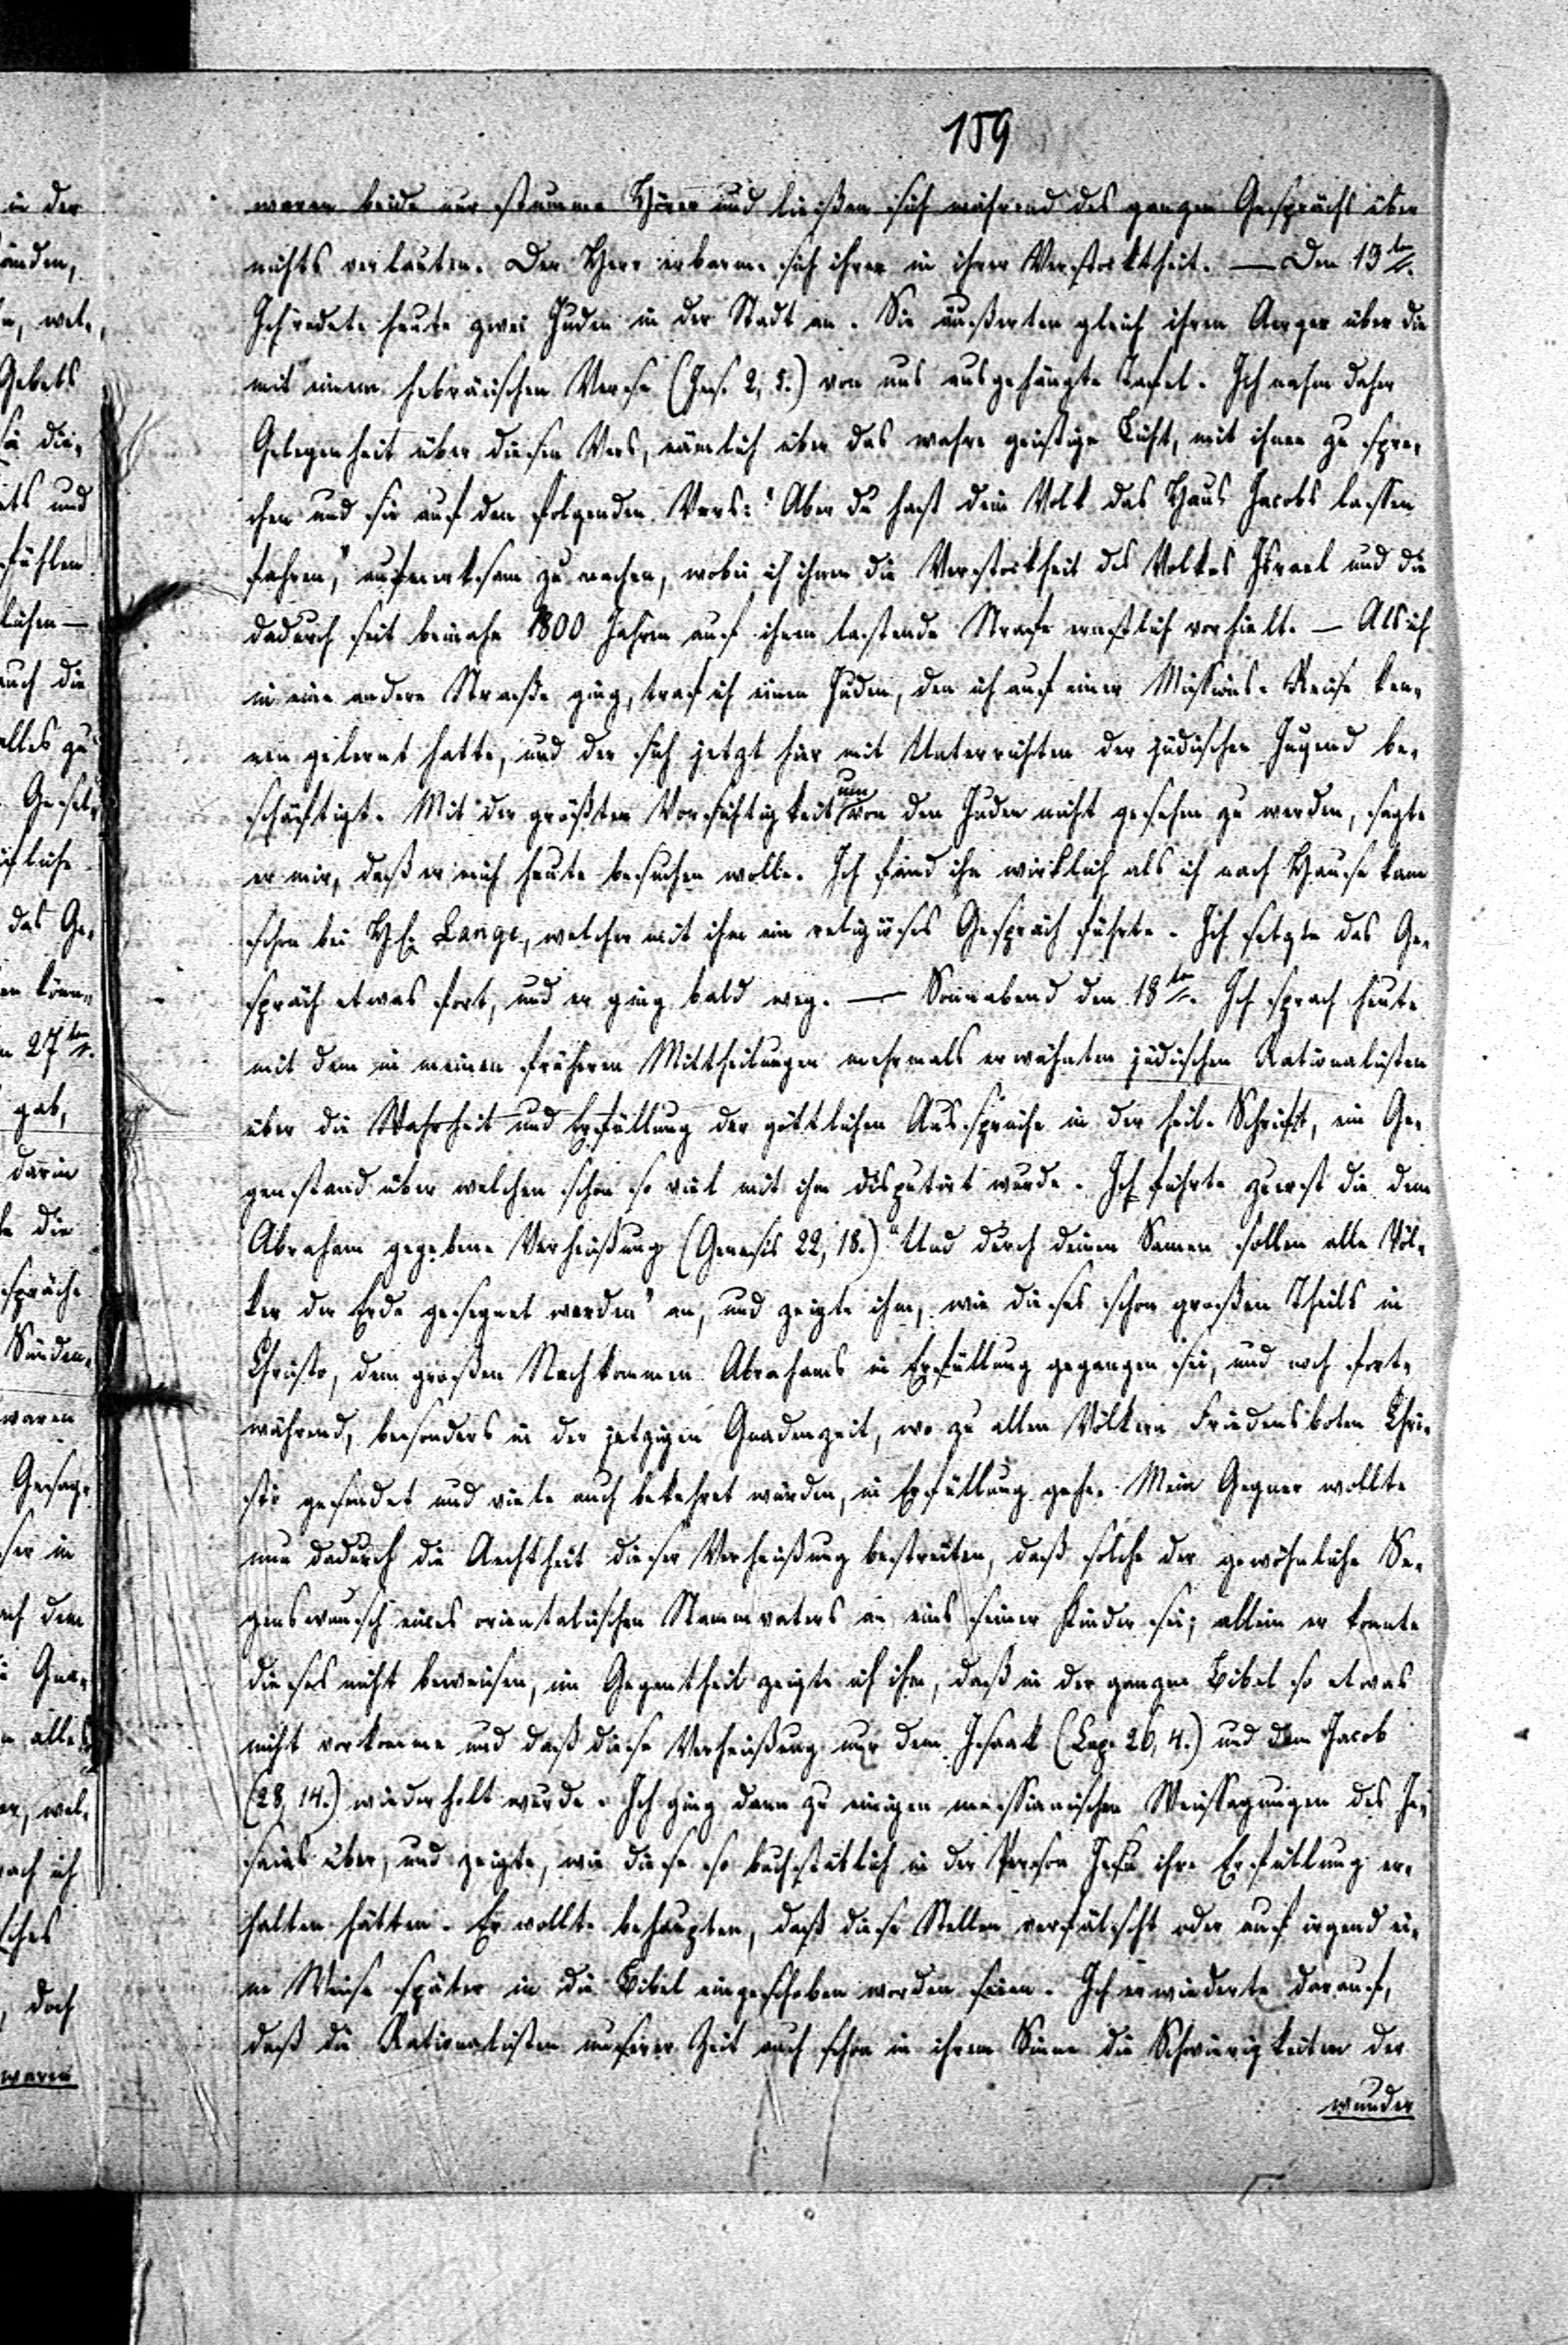 159
waren beide nur stumme Hörer und ließen sich während des ganzen Gesprächs über
nichts verlauten. Der Herr erbarme sich ihrer in ihrer Verstocktheit. — Den 13ten.
Ich redete heute zwei Juden in der Stadt an. Sie äußerten gleich ihren Aerger über die
mit einem hebräischen Verse (Jes. 2, 5.) von uns ausgehängte Tafel. Ich nahm daher
Gelegenheit über diesen Vers, nämlich über das wahre geistige Licht, mit ihnen zu spre-
chen und sie auf den folgenden Vers: "Aber du hast dein Volk das Haus Jacobs lassen
fahren," aufmerksam zu machen, wobei ich ihnen die Verstocktheit des Volkes Israel und die
dadurch seit beinahe 1800 Jahren auf ihnen lastende Strafe ernstlich vorhielt. — Als ich
in eine andere Straße ging, traf ich einen Juden, den ich auf einer Missions-Reise ken-
nen gelernt hatte, und der sich jetzt hier mit Unterrichten der jüdischen Jugend be-
schäftigt. Mit der größten Vorsichtigkeit um von den Juden nicht gesehen zu werden, sagte
er mir, daß er mich heute besuchen wolle. Ich fand ihn wirklich als ich nach Hause kam
schon bei H. Lange, welcher mit ihm ein religiöses Gespräch führte. Ich setzte das Ge-
spräch etwas fort, und er ging bald weg. — Sonnabend den 18ten. Ich sprach heute
mit dem in meinen früheren Mittheilungen mehrmals erwähnten jüdischen Rationalisten
über die Wahrheit und Erfüllung der göttlichen Aussprüche in der heil. Schrift, ein Ge-
genstand über welchen schon so viel mit ihm disputirt wurde. Ich führte zuerst die dem
Abraham gegebene Verheißung (Genesis 22, 18.) "Und durch deinen Samen sollen alle Völ-
ker der Erde gesegnet werden" an, und zeigte ihm, wie dieses schon großen Theils in
Christo, dem großen Nachkommen Abrahams in Erfüllung gegangen sei, und noch fort-
während, besonders in der jetzigen Gnadenzeit, wo zu allen Völkern Friedensboten Chri-
sti gesendet und viele auch bekehret würden, in Erfüllung gehe. Mein Gegner wollte
nun dadurch die Aechtheit dieser Verheißung bestreiten, daß solche der gewöhnliche Se-
genswunsch eines orientalischen Stammvaters an eins seiner Kinder sei; allein er konnte
dieses nicht beweisen, im Gegentheil zeigte ich ihm, daß in der ganzen Bibel so etwas
nicht vorkomme und daß diese Verheißung nur dem Isaak (Cap. 26, 4.) und dem Jacob
(28, 14.) wiederholt wurde. Ich ging dann zu einigen messianischen Weissagungen des Je-
saias über, und zeigte, wie diese so buchstäblich in der Person Jesu ihre Erfüllung er-
halten hätten. Er wollte behaupten, daß diese Stellen verfälscht oder auf irgend ei-
ne Weise später in die Bibel eingeschoben worden seien. Ich erwiederte darauf,
daß die Rationalisten unserer Zeit auch schon in ihrem Sinne die Schwierigkeiten der
wunder